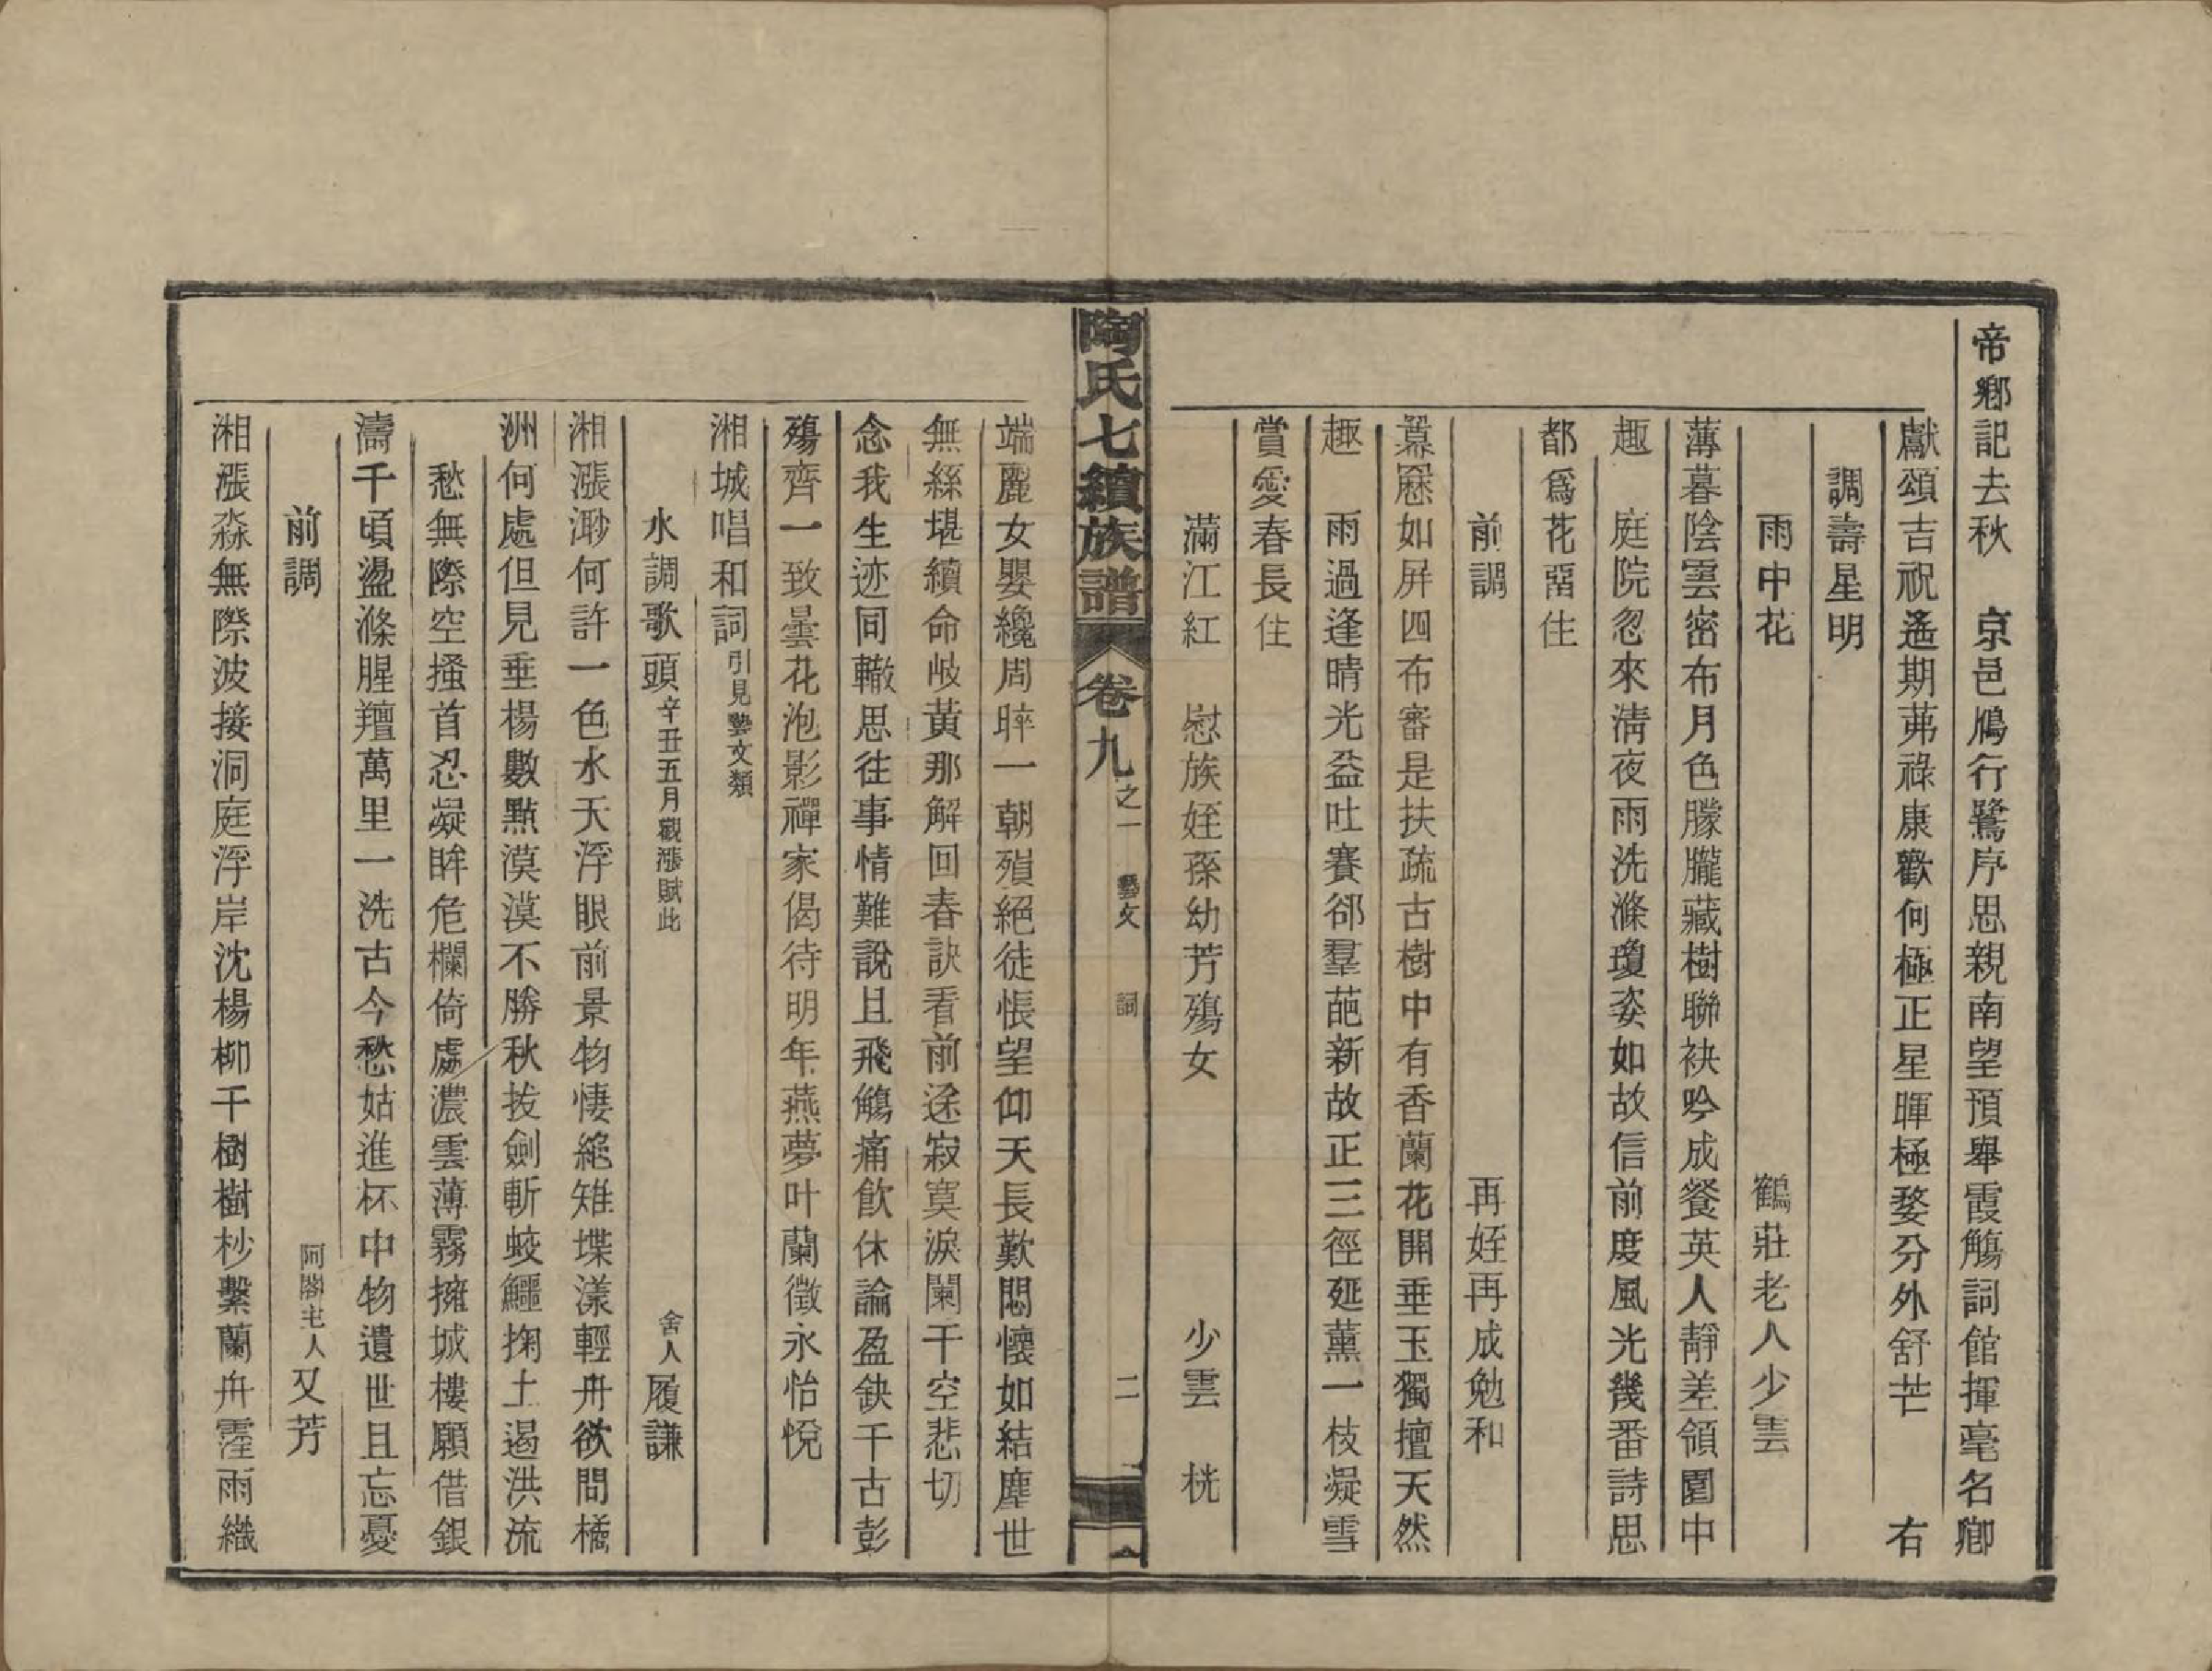 帝鄉記去秋　京邑鴈行鷺序思親南望預舉霞觴詞館揮毫名卿
獻頌吉祝遙期茀祿康歡何極正星暉極婺分外舒芒　　右
調壽星明
雨中花　　鶴莊老人少雲
薄暮陰雲密布月色朦朧藏樹聯袂吟成餐英人靜差領園中
趣　庭院忽來淸夜雨洗滌瓊姿如故信前度風光幾番詩思
都爲花畱住
前調　　再姪再成勉和
羃䍥如屏四布審是扶疏古樹中有香蘭花開垂玉獨擅天然
趣　雨過逢晴光益吐賽郤羣葩新故正三徑延薰一枝凝雪
賞愛春長住
滿江紅　慰族姪孫幼芳殤女　　少雲　桄
陶氏七續族譜　卷九之一　藝文　詞　二
端麗女嬰纔周晬一朝殞絕徒悵望仰天長歎悶懷如結塵世
無絲堪續命岐黃那解回春訣看前途寂寞淚闌干空悲切
念我生迹同轍思往事情難說且飛觴痛飲休論盈缺千古彭
殤齊一致曇花泡影禪家偈待明年燕夢叶蘭徵永怡悅
湘城唱和詞引見藝文類
水調歌頭辛丑五月觀漲賦此　　舍人履謙
湘漲渺何許一色水天浮眼前景物悽絕雉堞漾輕舟欲問橘
洲何處但見垂楊數點漠漠不勝秋拔劍斬蛟鱷掬土遏洪流
愁無際空搔首忍凝眸危欄倚處濃雲薄霧擁城樓願借銀
濤千頃盪滌腥羶萬里一洗古今愁姑進杯中物遺世且忘憂
前調　　阿閣主人又芳
湘漲淼無際波接洞庭浮岸沈楊柳千樹樹杪繫蘭舟霪雨織